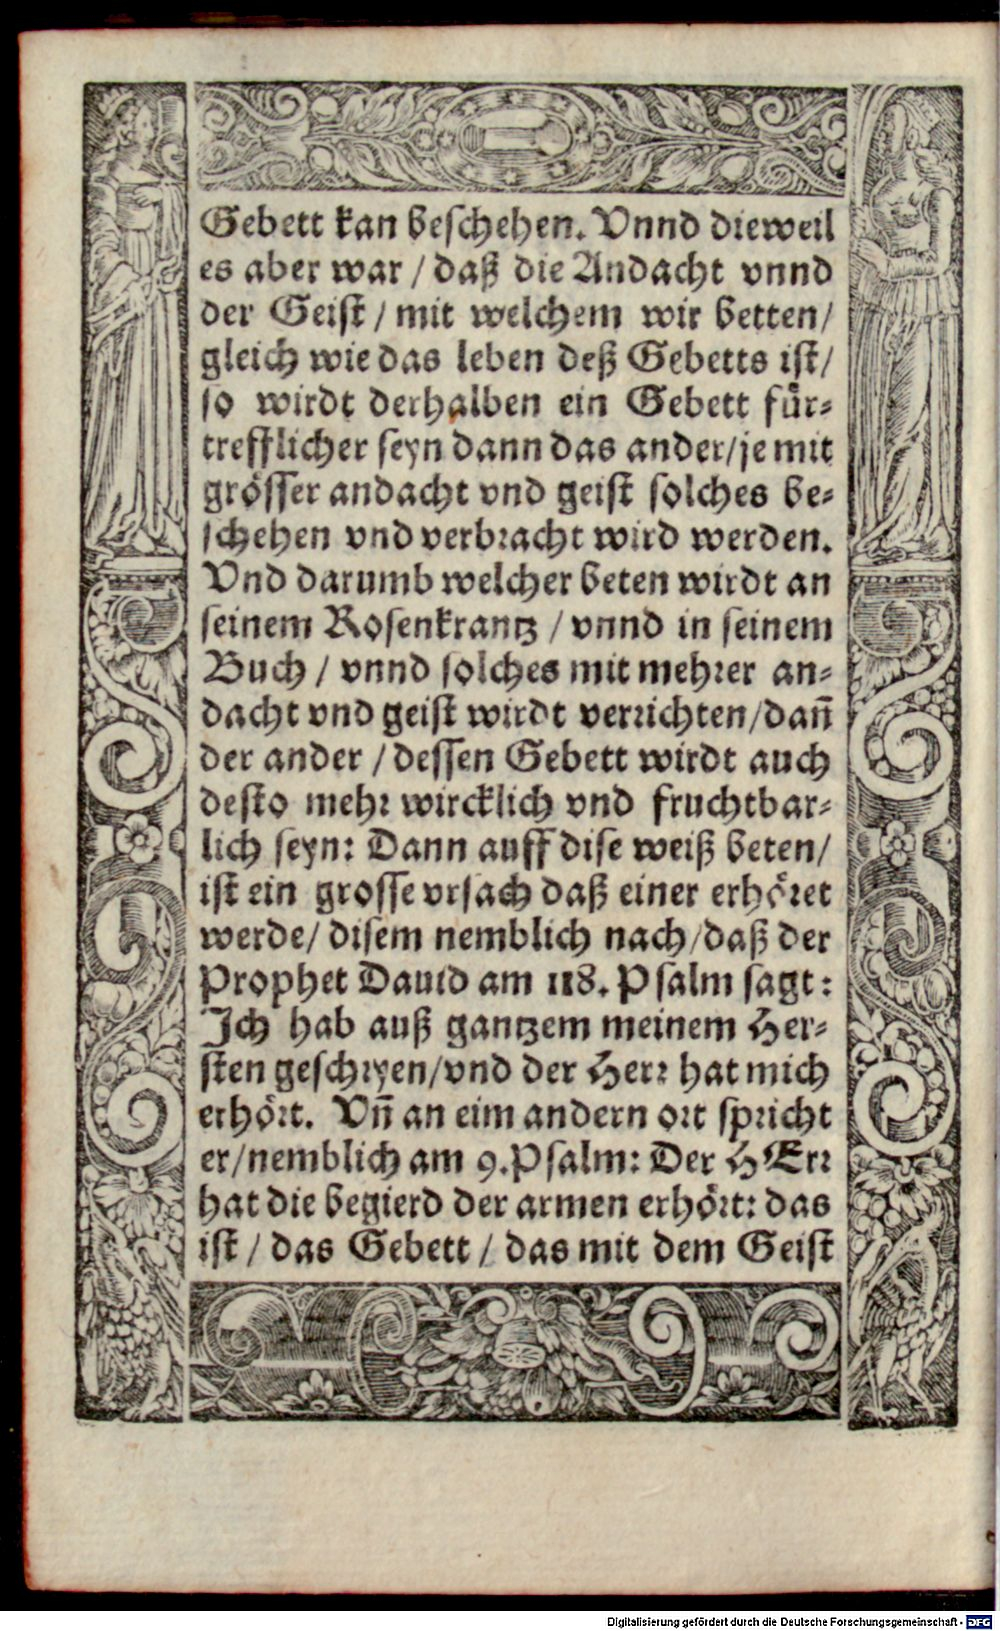 Gebett kan beschehen. Vnnd dieweil
es aber war / daß die Andacht vnnd
der Geist / mit welchem wir betten/
gleich wie das leben deß Gebetts ist/
so wirdt derhalben ein Gebett fuͤr⸗
trefflicher seyn dann das ander/je mit
groͤsser andacht vnd geist solches be⸗
schehen vnd verbracht wird werden.
Vnd darumb welcher beten wirdt an
seinem Rosenkrantz / vnnd in seinem
Buch / vnnd solches mit mehrer an⸗
dacht vnd geist wirdt verrichten/dañ
der ander / dessen Gebett wirdt auch
desto mehr wircklich vnd fruchtbar⸗
lich seyn: Dann auff dise weiß beten/
ist ein grosse vrsach daß einer erhoͤret
werde/ disem nemblich nach/daß der
Prophet Dauid am 118. Psalm sagt:
Jch hab auß gantzem meinem Her⸗
sten geschryen/vnd der Herr hat mich
erhoͤrt. Vñ an eim andern ort spricht
er/nemblich am 9.Psalm: Der HErr
hat die begierd der armen erhoͤrt: das
ist / das Gebett / das mit dem Geist
Digitalisierung gefördert durch die Deutsche Forschungsgemeinschaft - DFG